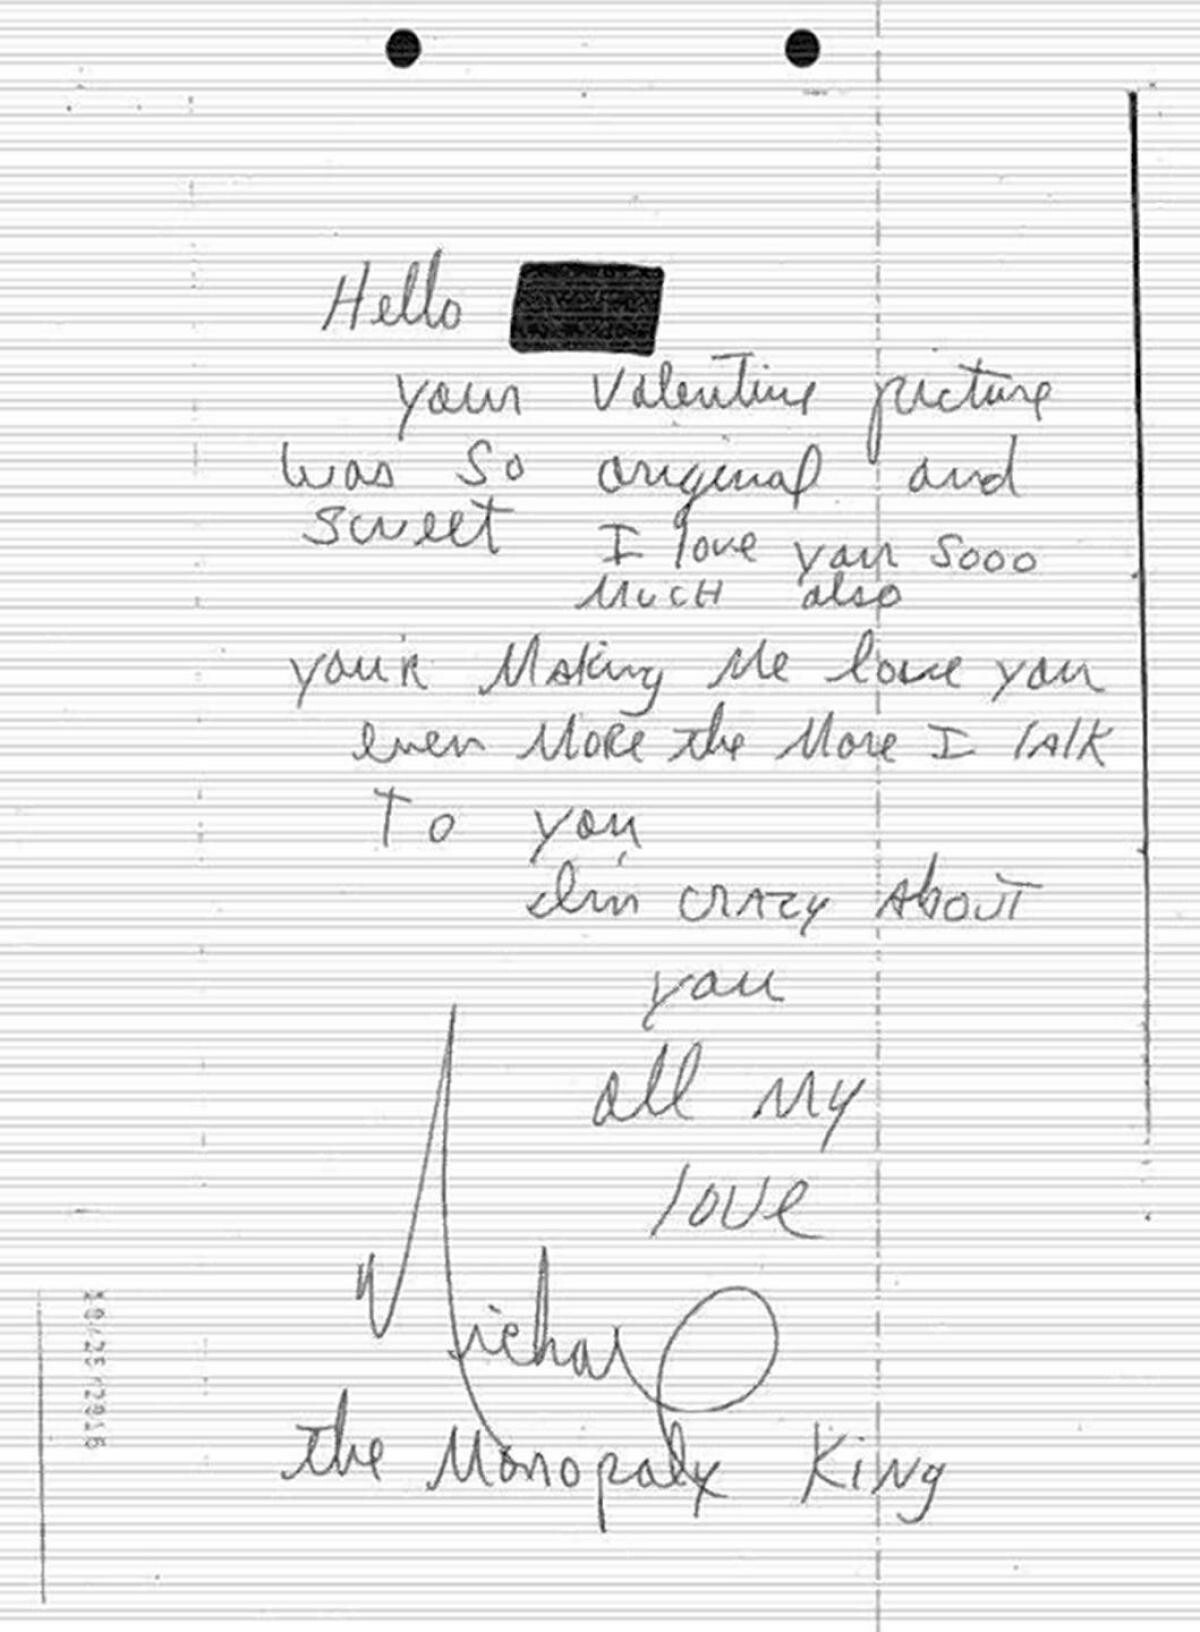 Hello
your Valentine picture
was so original and
sweet I love you sooo
much also
your Making Me love you
even More the More I talk
To you
I'm crazy about
you
all my
love
Michael
the Monopoly King
10/25/2016